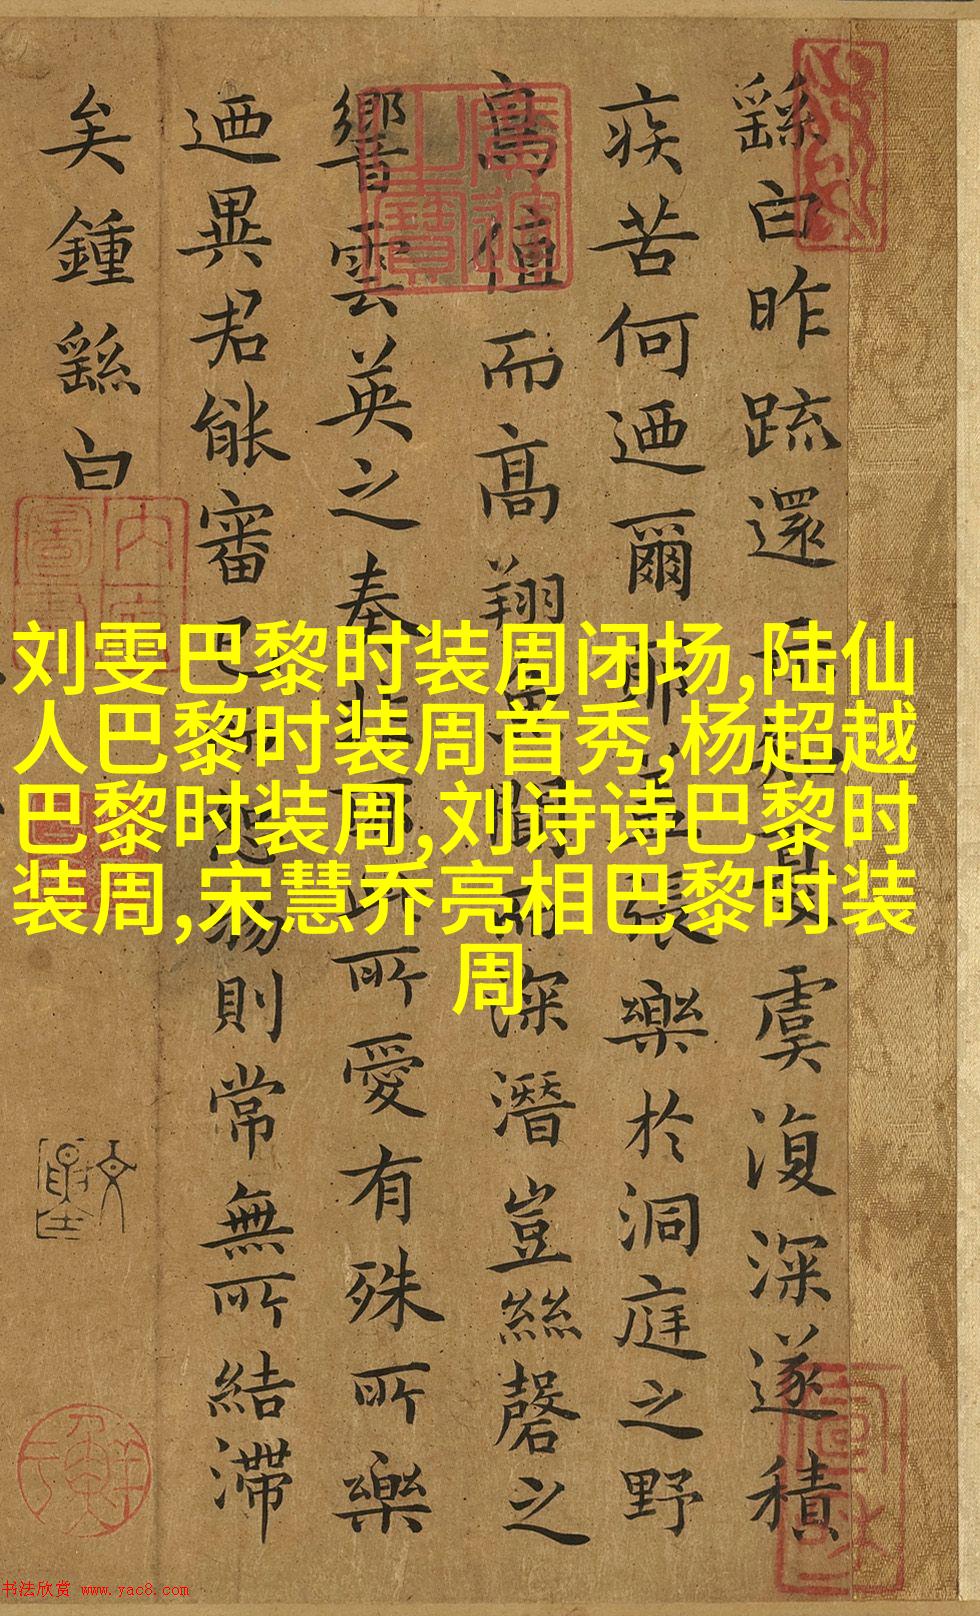 繇白昨疏還虞復深遂積
疾苦何迺爾耶張樂於洞庭之野
而高翔而深潛豈絲磬之
響雲英之奏所愛有殊所樂
迺異君能審己物則常無所結滯
矣鍾繇白
刘雯巴黎时装周闭场,陆仙
人巴黎时装周首秀,杨超越
巴黎时装周,刘诗诗巴黎时
装周,宋慧乔亮相巴黎时装
周
书法欣赏 www.yac8.com